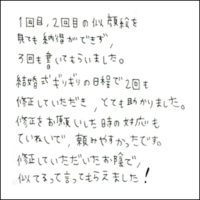 1回目,2回目の似顔絵を
見ても納得ができず,
3回も書いてもらいました。
結婚式ギリギリの日程で2回も
修正していただき,とても助かりました。
修正をお願いした時の対応も
ていねいで,頼みやすかったです。
修正していただいたお陰で,
似てるって言ってもらえました!